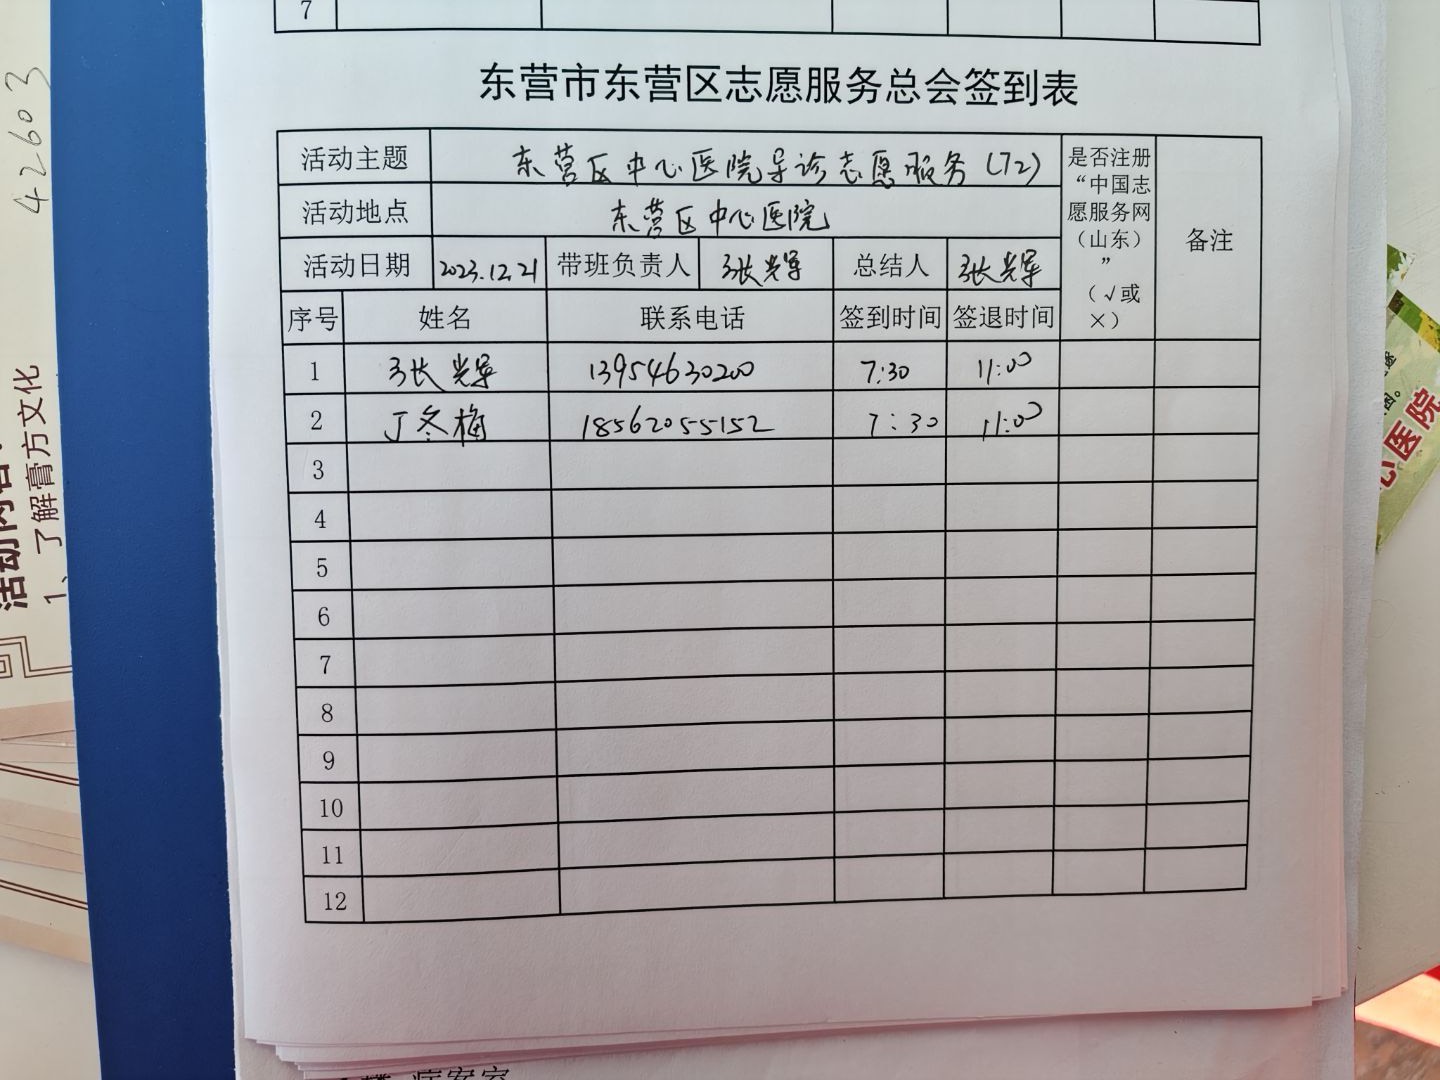 7
东营市东营区志愿服务总会签到表
活动主题 东营区中心医院导诊志愿服务(72)
活动地点 东营区中心医院
活动日期 2023.12.21 带班负责人 张光军 总结人 张光军
是否注册
“中国志
愿服务网
（山东）
”
（√或
×）
备注
序号 姓名 联系电话 签到时间 签退时间
1 张光军 13954630200 7:30 11:00
2 丁冬梅 18562055152 7:30 11:00
3
4
5
6
7
8
9
10
11
12
42603
1、了解膏方文化
心医院
病案室